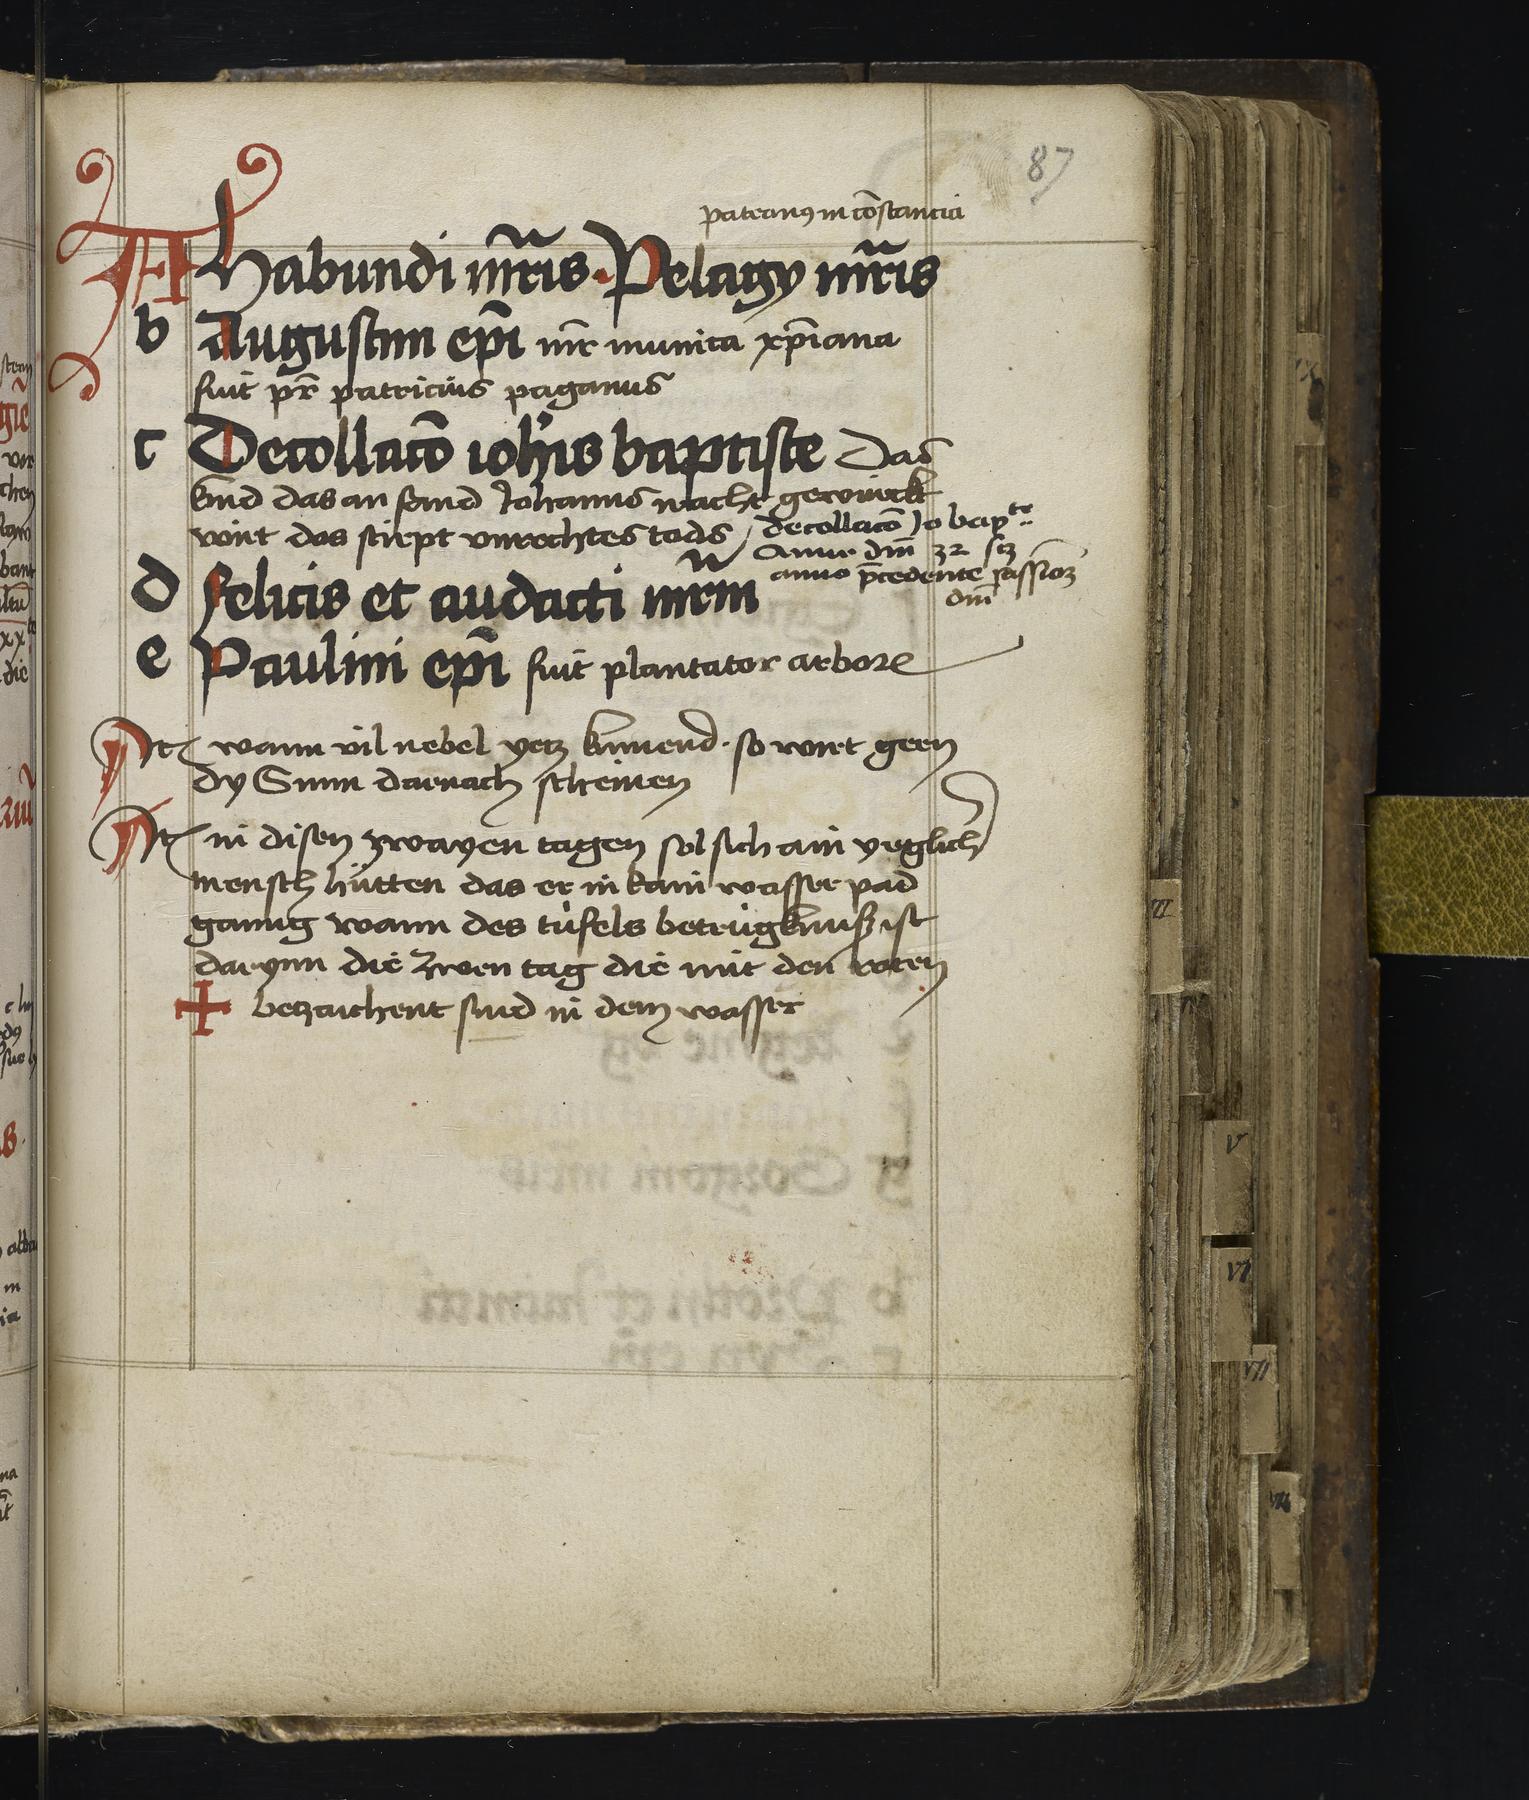 87
patronus in cōstancia
A habundi m̄ris · Pelagy m̄ris
b Augustini ep̄i mr̄ munica xp̄iana
fuit pr̄ patricius paganus
c Decollacō ioh'is baptiste Das
kind das an sand Johanns nacht gewürckt
wirt das stirpt vnrechtes tods / decollacō Jo bap^te
Anno dn̄i 32 scz
anno p̄cedente passioꝫ
dn̄i
d felicis et audacti mr̄m
e Paulini ep̄i fuit plantator arbore
Itꝫ wann vil nebel yetz kumend · so wirt geren
dy Sunn darnach scheinen
Itꝫ in disen zwayen tagen sol sich ain yeglich
mensch hütten das er in kain wasser pad
gang wann des tüfels betrügknuß ist
darynn die zwen tag die mit den roten
+ beczaichent sind in dem wasser
III
V
VI
VII